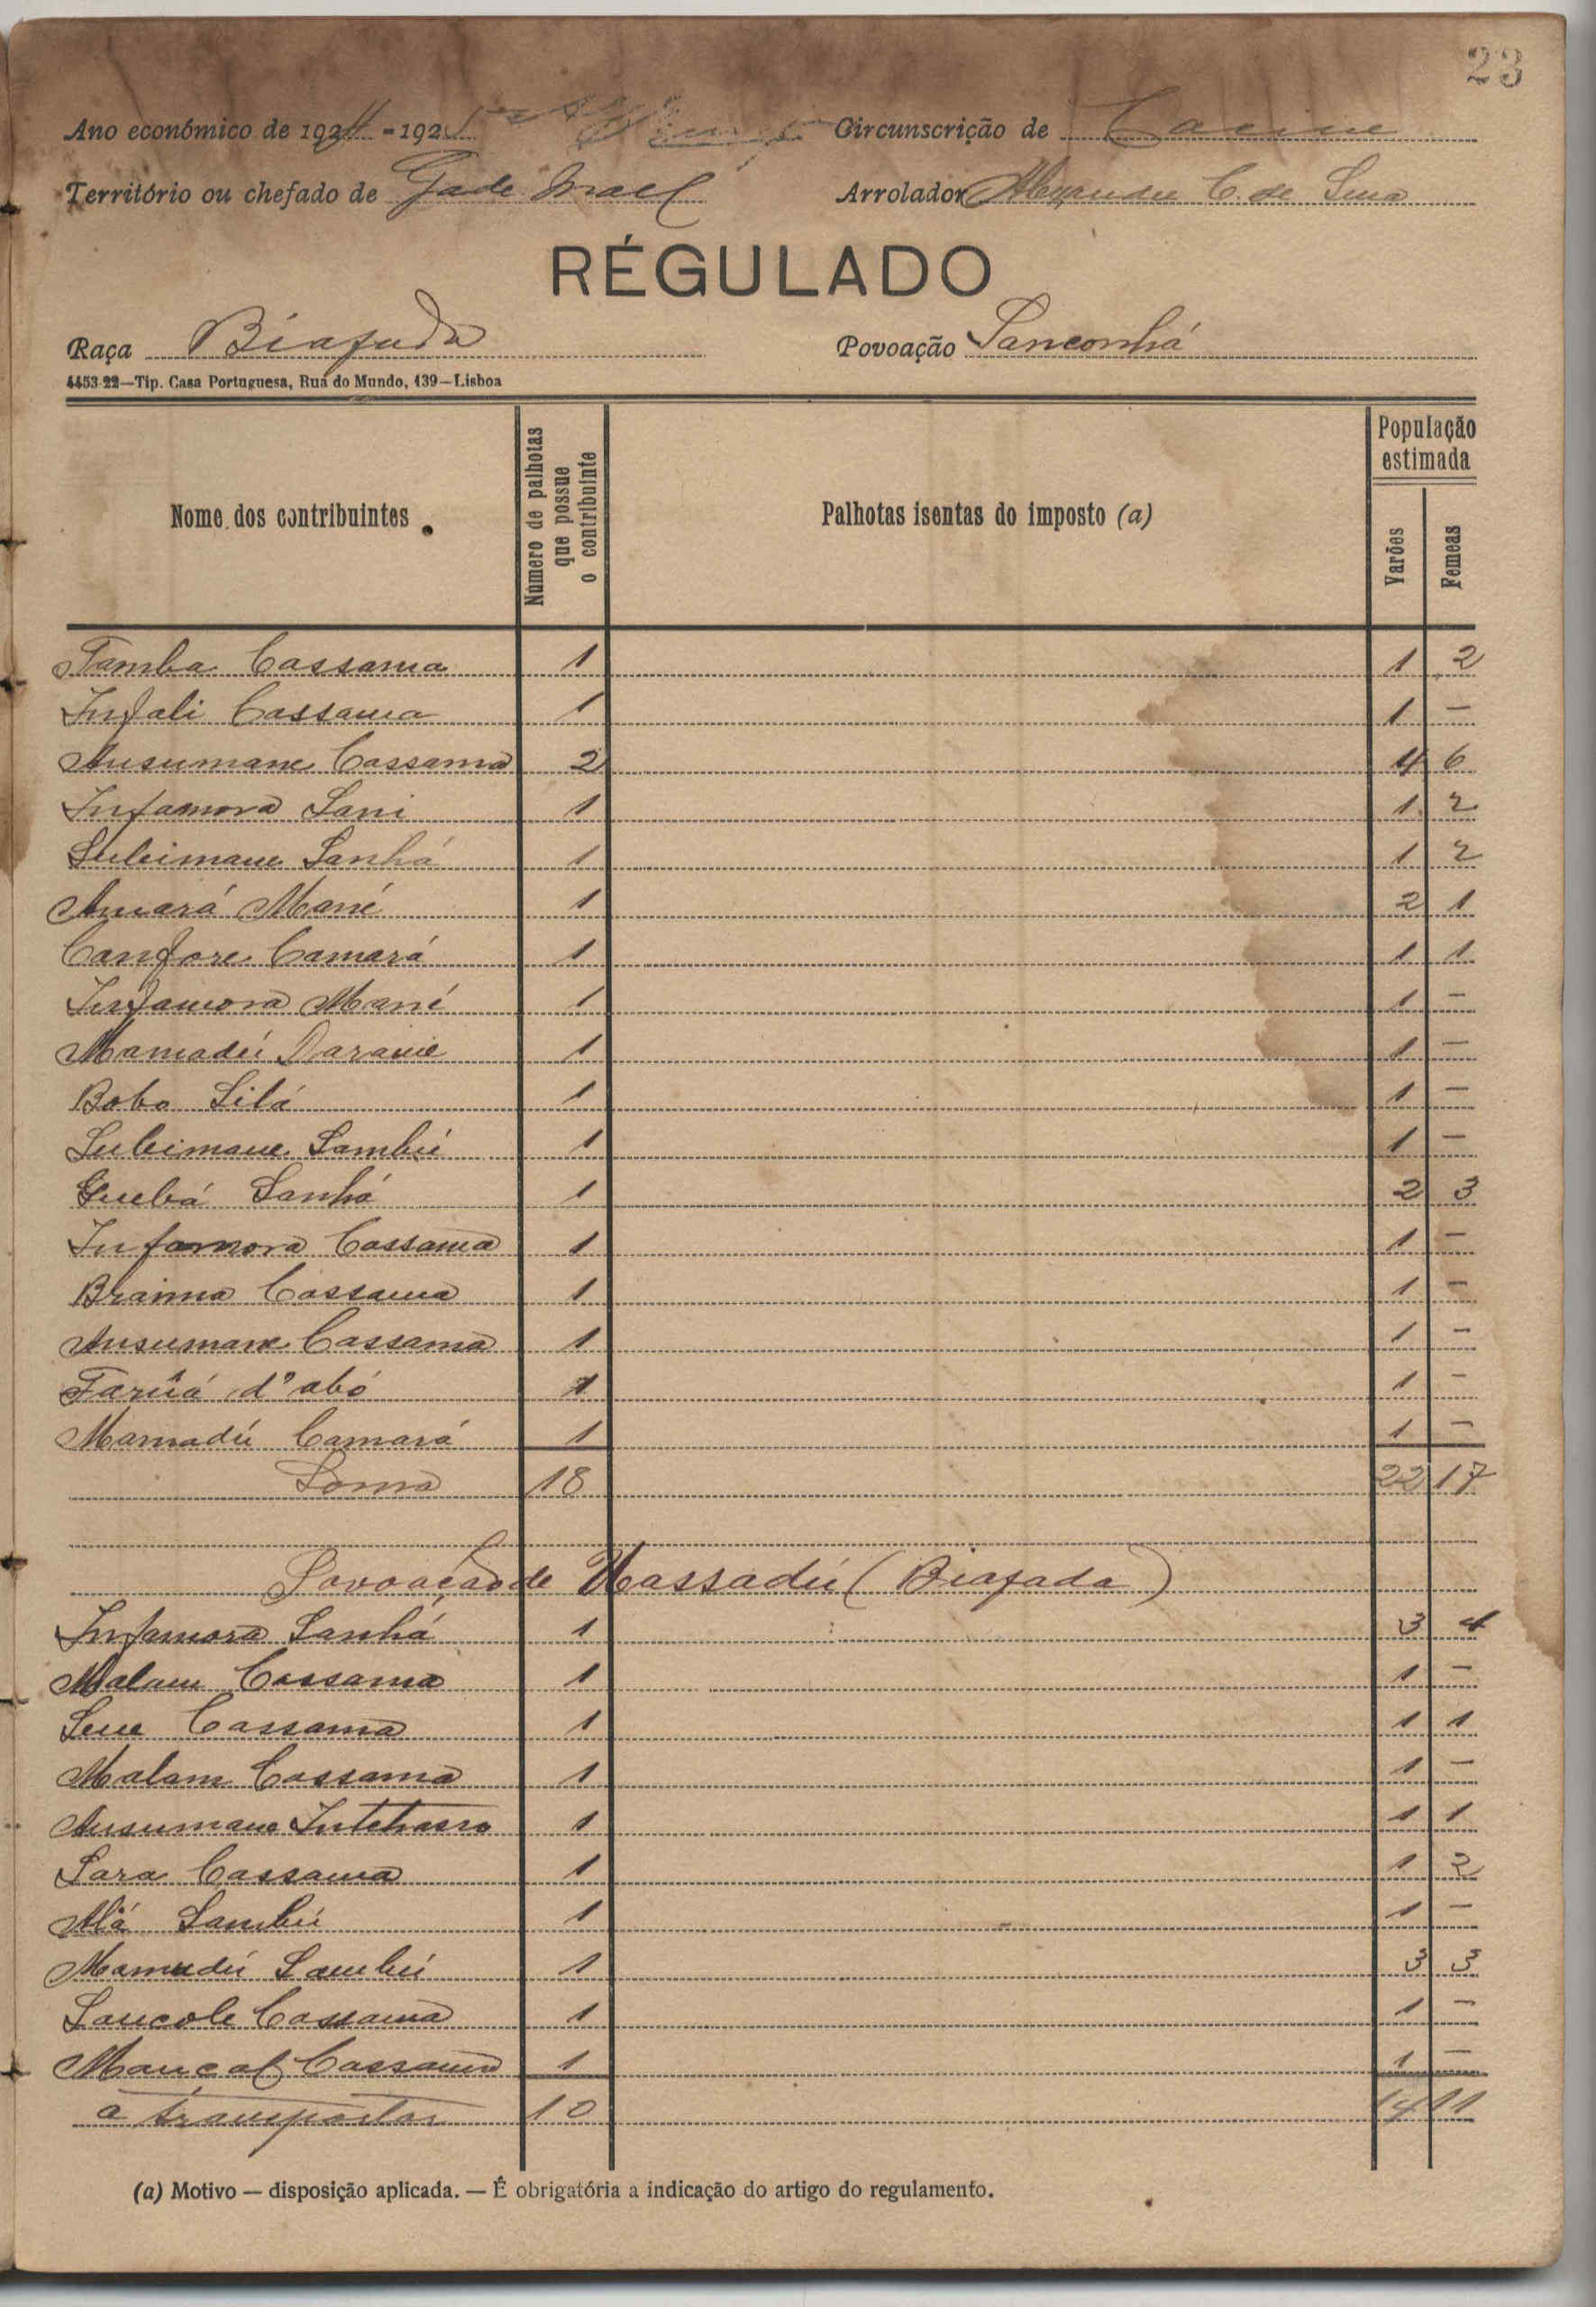 23
Ano económico de 1924-1925 Circunscrição de Cacine
Território ou chefado de Gade Mael Arrolador Alexandre C. de Sena
RÉGULADO
Raça Biafada Povoação Sanconhá
4453-22—Tip. Casa Portuguesa, Rua do Mundo, 139—Lisboa
Nome dos contribuintes Número de palhotas que possue o contribuinte Palhotas isentas do imposto (a) População estimada Varões Femeas
Tamba Cassama 1 1 2
Infali Cassama 1 1 —
Ansumane Cassama 2 4 6
Infamora Sani 1 1 2
Suleimane Sanhá 1 1 2
Amará Mané 1 2 1
Canfore Camará 1 1 1
Infamora Mané 1 1 —
Mamadú Darame 1 1 —
Bobo Silá 1 1 —
Suleimane Sambú 1 1 —
Quebá Sanhá 1 2 3
Infamora Cassama 1 1 —
Braima Cassama 1 1 —
Ansumane Cassama 1 1 —
d'abó 1 1 —
Mamadú Camará 1 1 —
Soma 18 22 17
Povoação de Massadú (Biafada)
Infamora Sanhá 1 3 4
Malam Cassama 1 1 —
Sene Cassama 1 1 1
Malam Cassama 1 1 —
Ansumane Intchasso 1 1 1
Sara Cassama 1 1 2
Alá Sambú 1 1 —
Mamudú Sambú 1 3 3
Sancole Cassama 1 1 —
Mancal Cassama 1 1 —
a transportar 10 14 11
(a) Motivo — disposição aplicada. — É obrigatória a indicação do artigo do regulamento.